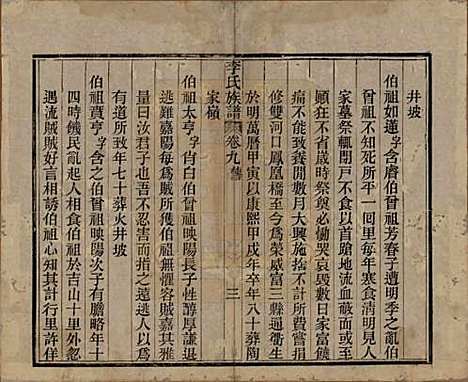 井坡
伯祖如蓮孚含齎伯曾祖芳春子遭明季之亂伯
曾祖不知死所平一回里每年寒食清明見人
家墓祭輒閉戶不食以首蹌地流血蔽面或至
顛狂不省歲時祭奠必慟哭哀毀數日家富饒
痛不能致養開數月大興施捨不計所費嘗捐
修雙河口鳳凰橋至今為榮威富三縣通衢生
於明萬曆甲寅以康熙甲戌年卒年八十葬陶
家嶺
李氏族譜 卷九 三
伯祖太亨孚肖白伯曾祖映陽長子性醇厚謙退
逃難嘉陽每為賊所獲伯祖無懼容賊嘉其雅
量曰汝君子也吾不忍害而指之遠逃人以為
有道所致年七十葬火井坡
伯祖賁亨孚含之伯曾祖映陽次子有膽略年十
四時饑民亂起人相食伯祖於古山十里外忽
遇流賊賊好言相誘伯祖心知其計行里許佯